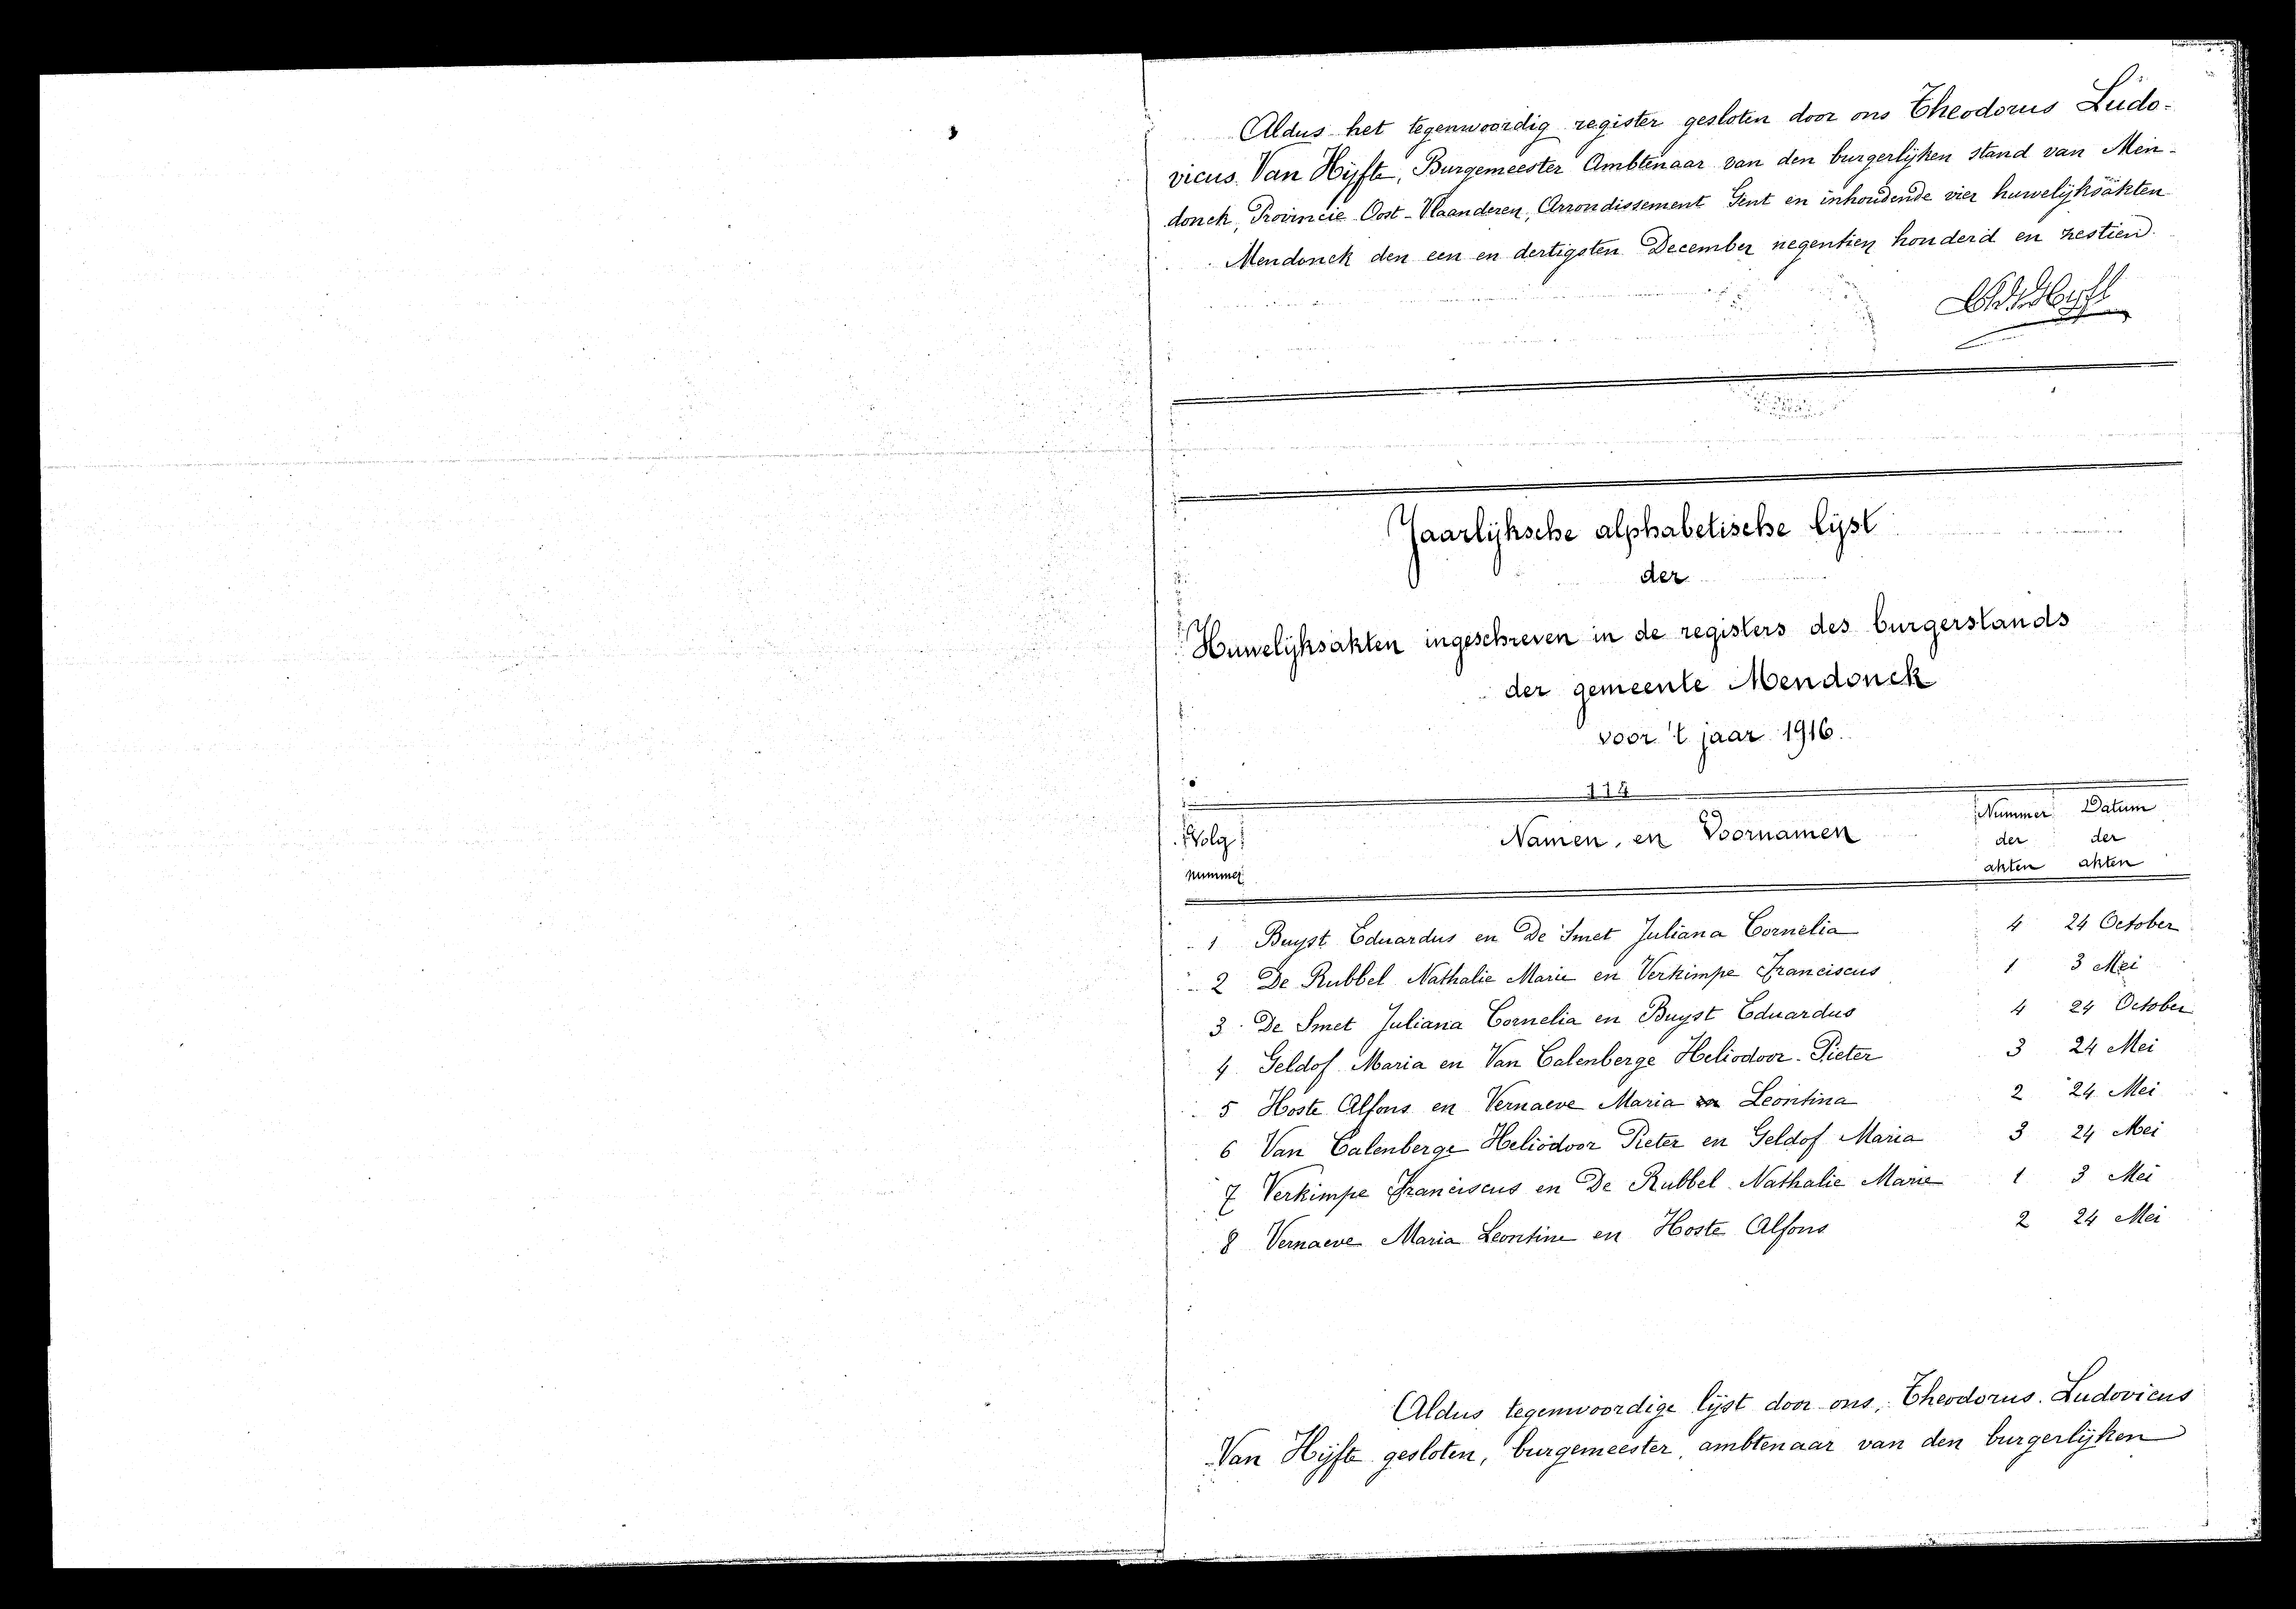 Aldus het tegenwoordig register gesloten door ons Theodorus Ludo-
vicus Van Hijfte, Burgemeester Ambtenaar van den burgerlijken stand van Men-
donck, Provincie Oost-Vlaanderen, Arrondissement Gent en inhoudende vier huwelijksakten
Mendonck den een en dertigsten December negentien honderd en zestien.
Jaarlijksche alphabetische lijst
der
Huwelijksakten ingeschreven in de registers des burgerstands
der gemeente Mendonck
voor 't jaar 1916.
Volg nummer Namen en Voornamen Nummer der akten Datum der akten
1 Buyst Eduardus en De Smet Juliana Cornelia 4 24 October
2 De Rubbel Nathalie Marie en Verkimpe Franciscus 1 3 Mei
3 De Smet Juliana Cornelia en Buyst Eduardus 4 24 October
4 Geldof Maria en Van Calenberge Heliodoor Pieter 3 24 Mei
5 Hoste Alfons en Vernaeve Maria Leontina 2 24 Mei
6 Van Calenberge Heliodoor Pieter en Geldof Maria 3 24 Mei
7 Verkimpe Franciscus en De Rubbel Nathalie Marie 1 3 Mei
8 Vernaeve Maria Leontine en Hoste Alfons 2 24 Mei
Aldus tegenwoordige lijst door ons, Theodorus Ludovicus
Van Hijfte gesloten, burgemeester, ambtenaar van den burgerlijken